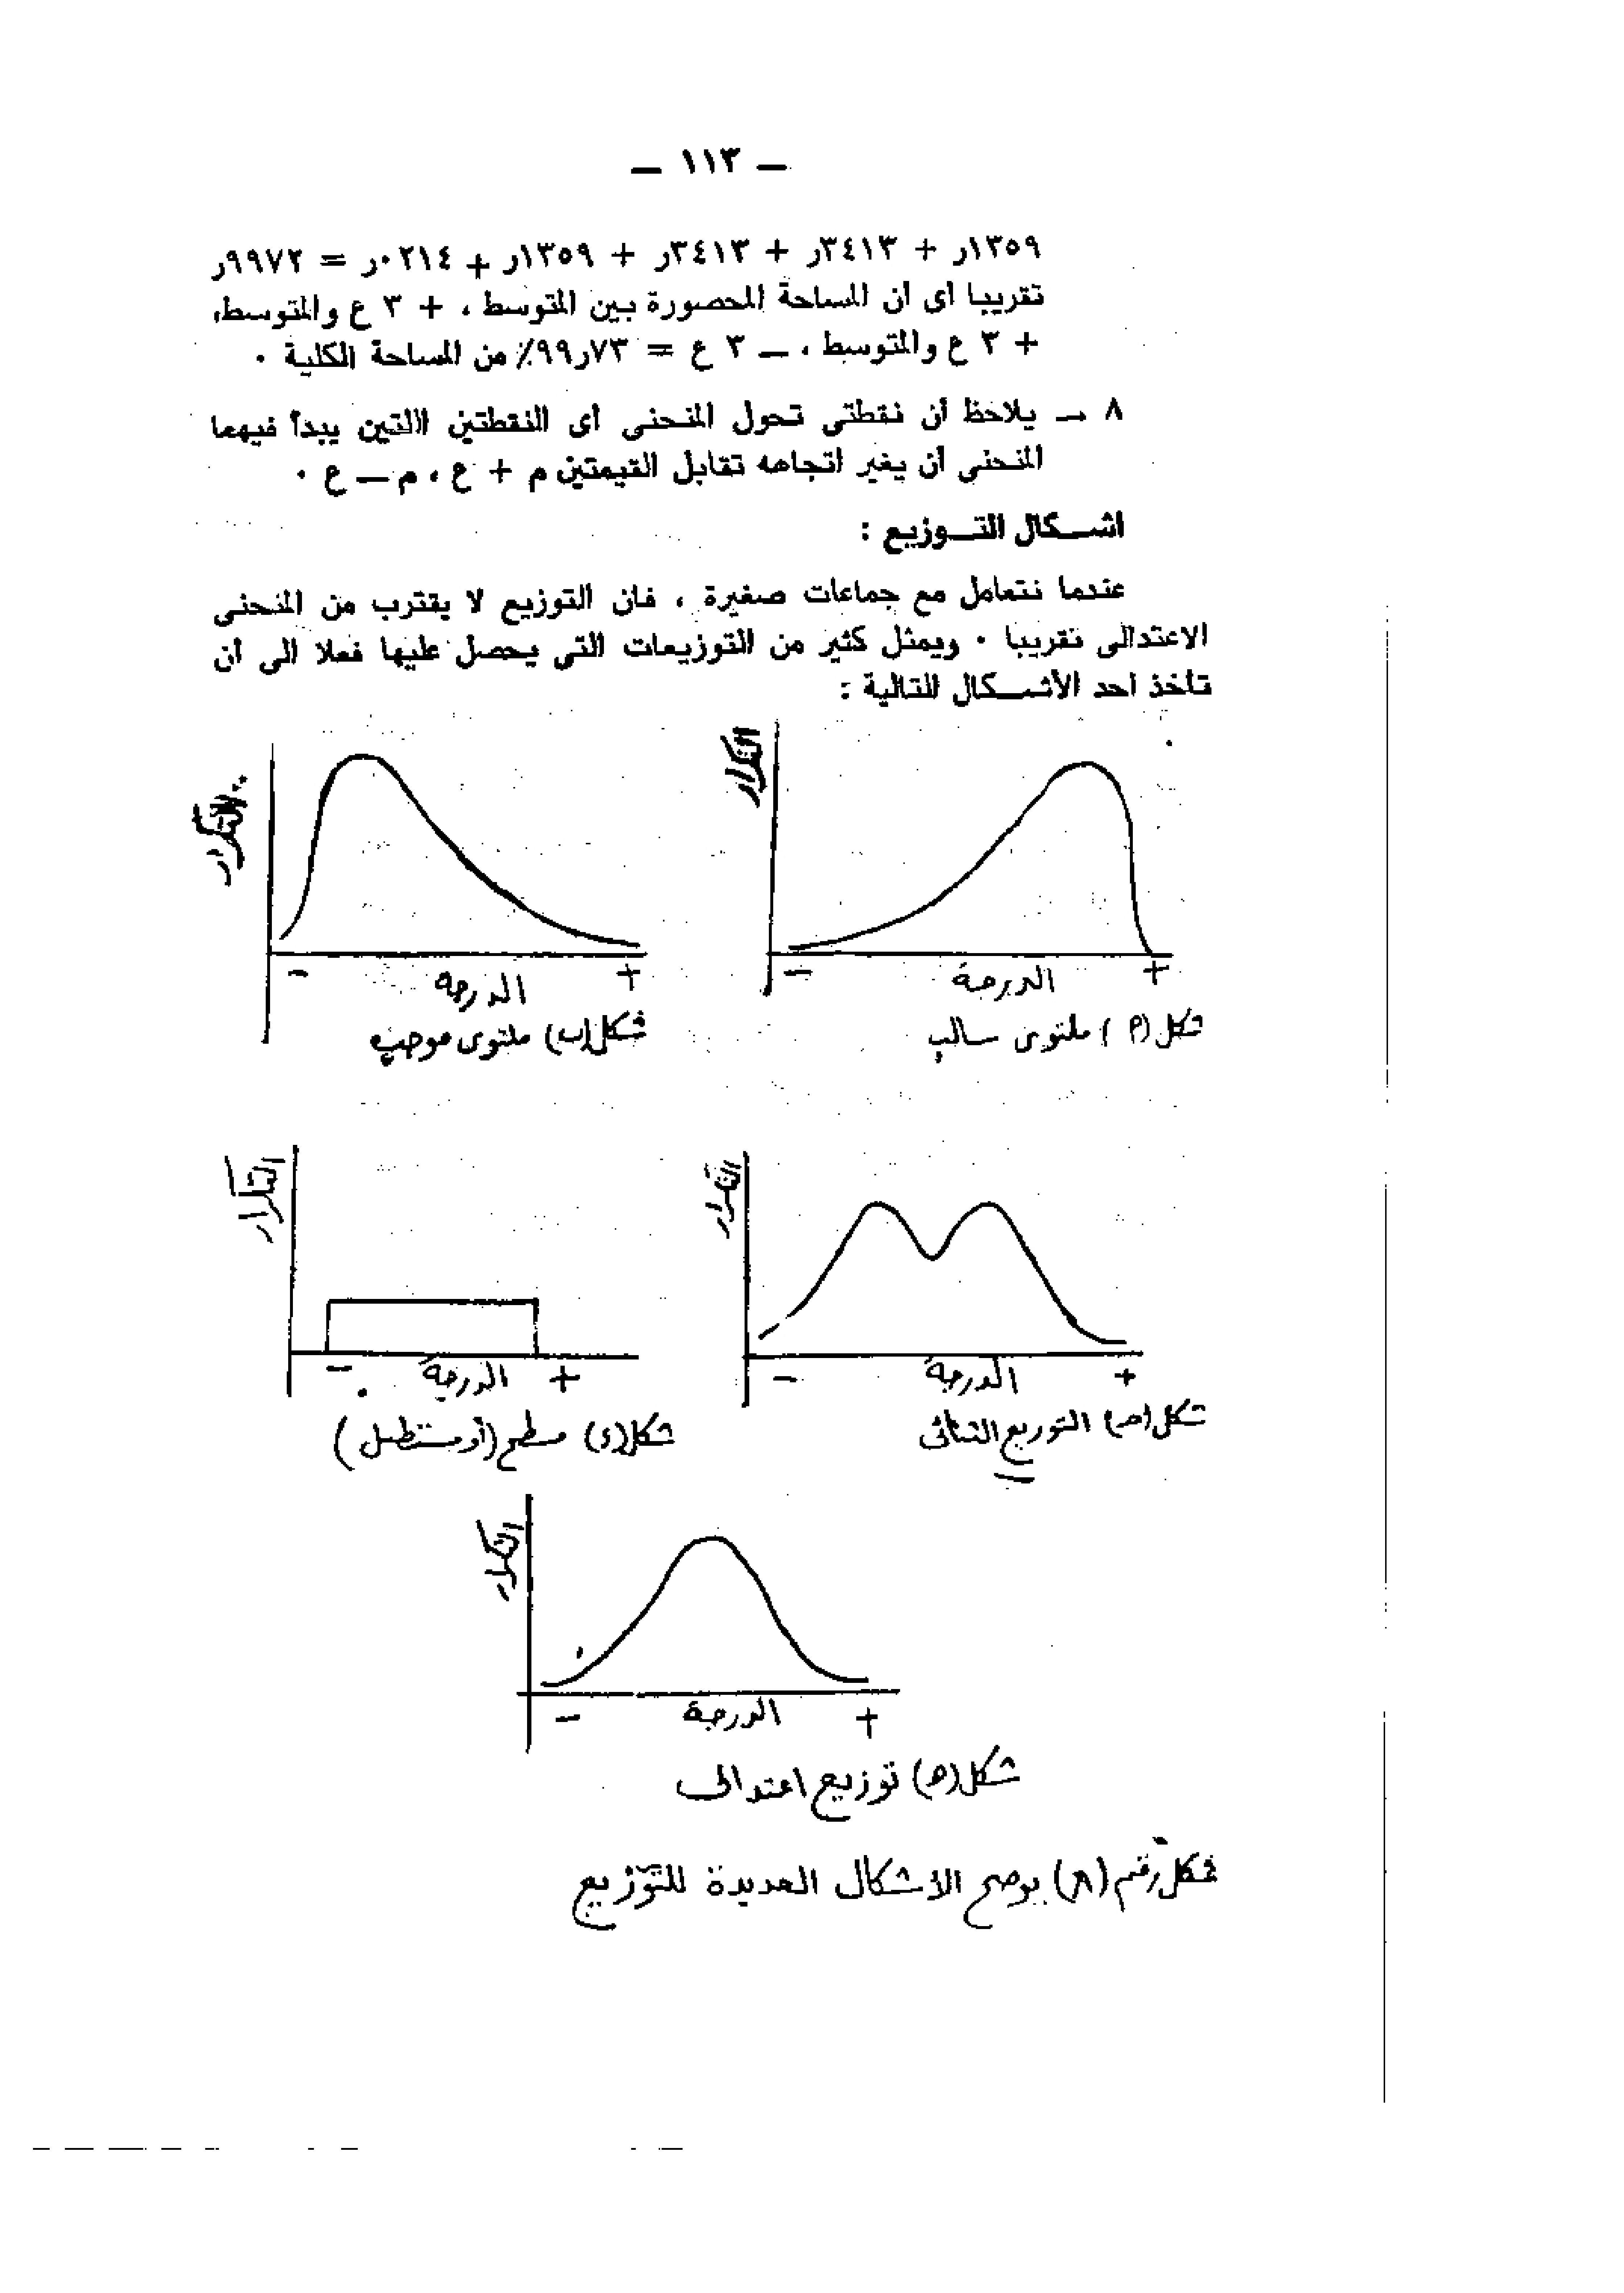 — ١١٣ —
١٣٥٩ر + ٣٤١٣ر + ٣٤١٣ر + ١٣٥٩ر + ٠٢١٤ر = ٩٩٧٢ر
تقريبا أى أن المساحة المحصورة بين المتوسط ، + ٣ ع والمتوسط،
+ ٣ ع والمتوسط ، — ٣ ع = ٧٣ر٩٩٪ من المساحة الكلية ٠
٨ — يلاحظ أن نقطتى تحول المنحنى أى النقطتين اللتين يبدأ فيهما
المنحنى أن يغير اتجاهه تقابل القيمتين م + ع ، م — ع ٠
اشــكال التــوزيع :
عندما نتعامل مع جماعات صغيرة ، فان التوزيع لا يقترب من المنحنى
الاعتدالى تقريبا ٠ ويمثل كثير من التوزيعات التي يحصل عليها فعلا الى أن
تأخذ احد الأشــكال التالية :
التكرار
التكرار
− الدرجة +
− الدرجة +
شكل (أ) ملتوى سالب
شكل (ب) ملتوى موجب
التكرار
التكرار
− الدرجة +
− الدرجة +
شكل (حـ) التوزيع الثنائى
شكل (د) مسطح (أو مستطيل)
التكرار
− الدرجة +
شكل (هـ) توزيع اعتدالى
شكل رقم () يوضح الأشكال العديدة للتوزيع